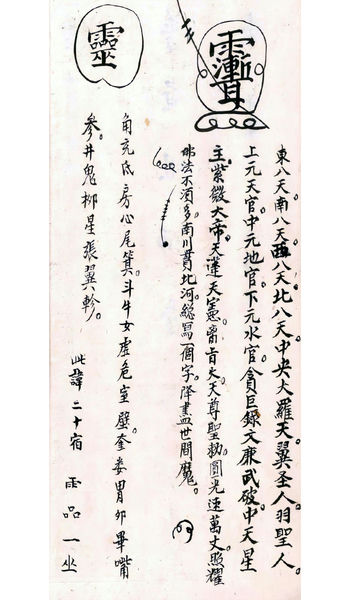 東八天。南八天。西八天。北八天。中央大羅天。翼圣人。羽聖人。
上元天官。中元地官。下元水官。貪巨錄文廉武破。中天星
主。紫微大帝。天蓬天憲。旨天天尊聖勑。圓光速萬丈。照耀
佛法不須多。南川貫北河。總寫一個字。降盡世間魔。
靈
角亢氐房心尾箕。斗牛女虛危室壁。奎婁胃卯畢嘴
參。井鬼柳星張翼軫。
此諱二十宿 雨品一坐